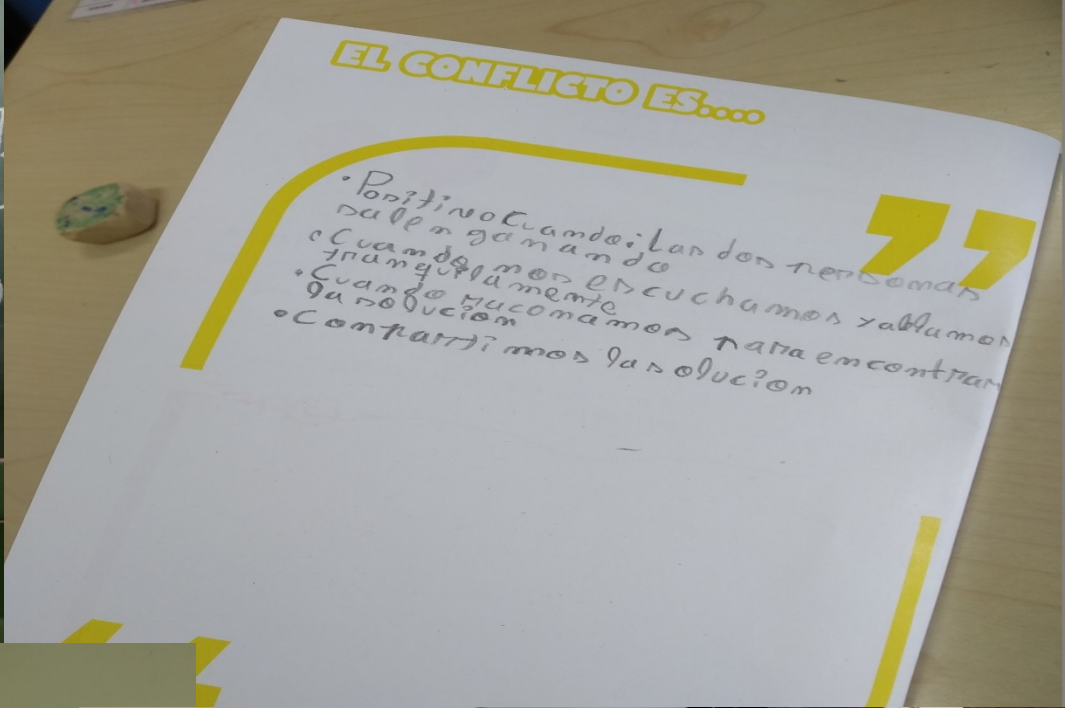 EL CONFLICTO ES....
• Positivo Cuando: Las dos personas
salen ganando
• Cuando nos escuchamos y ablamos
tranquilamente
• Cuando raconamos para encontrar
la solucion
• Compartimos la solucion